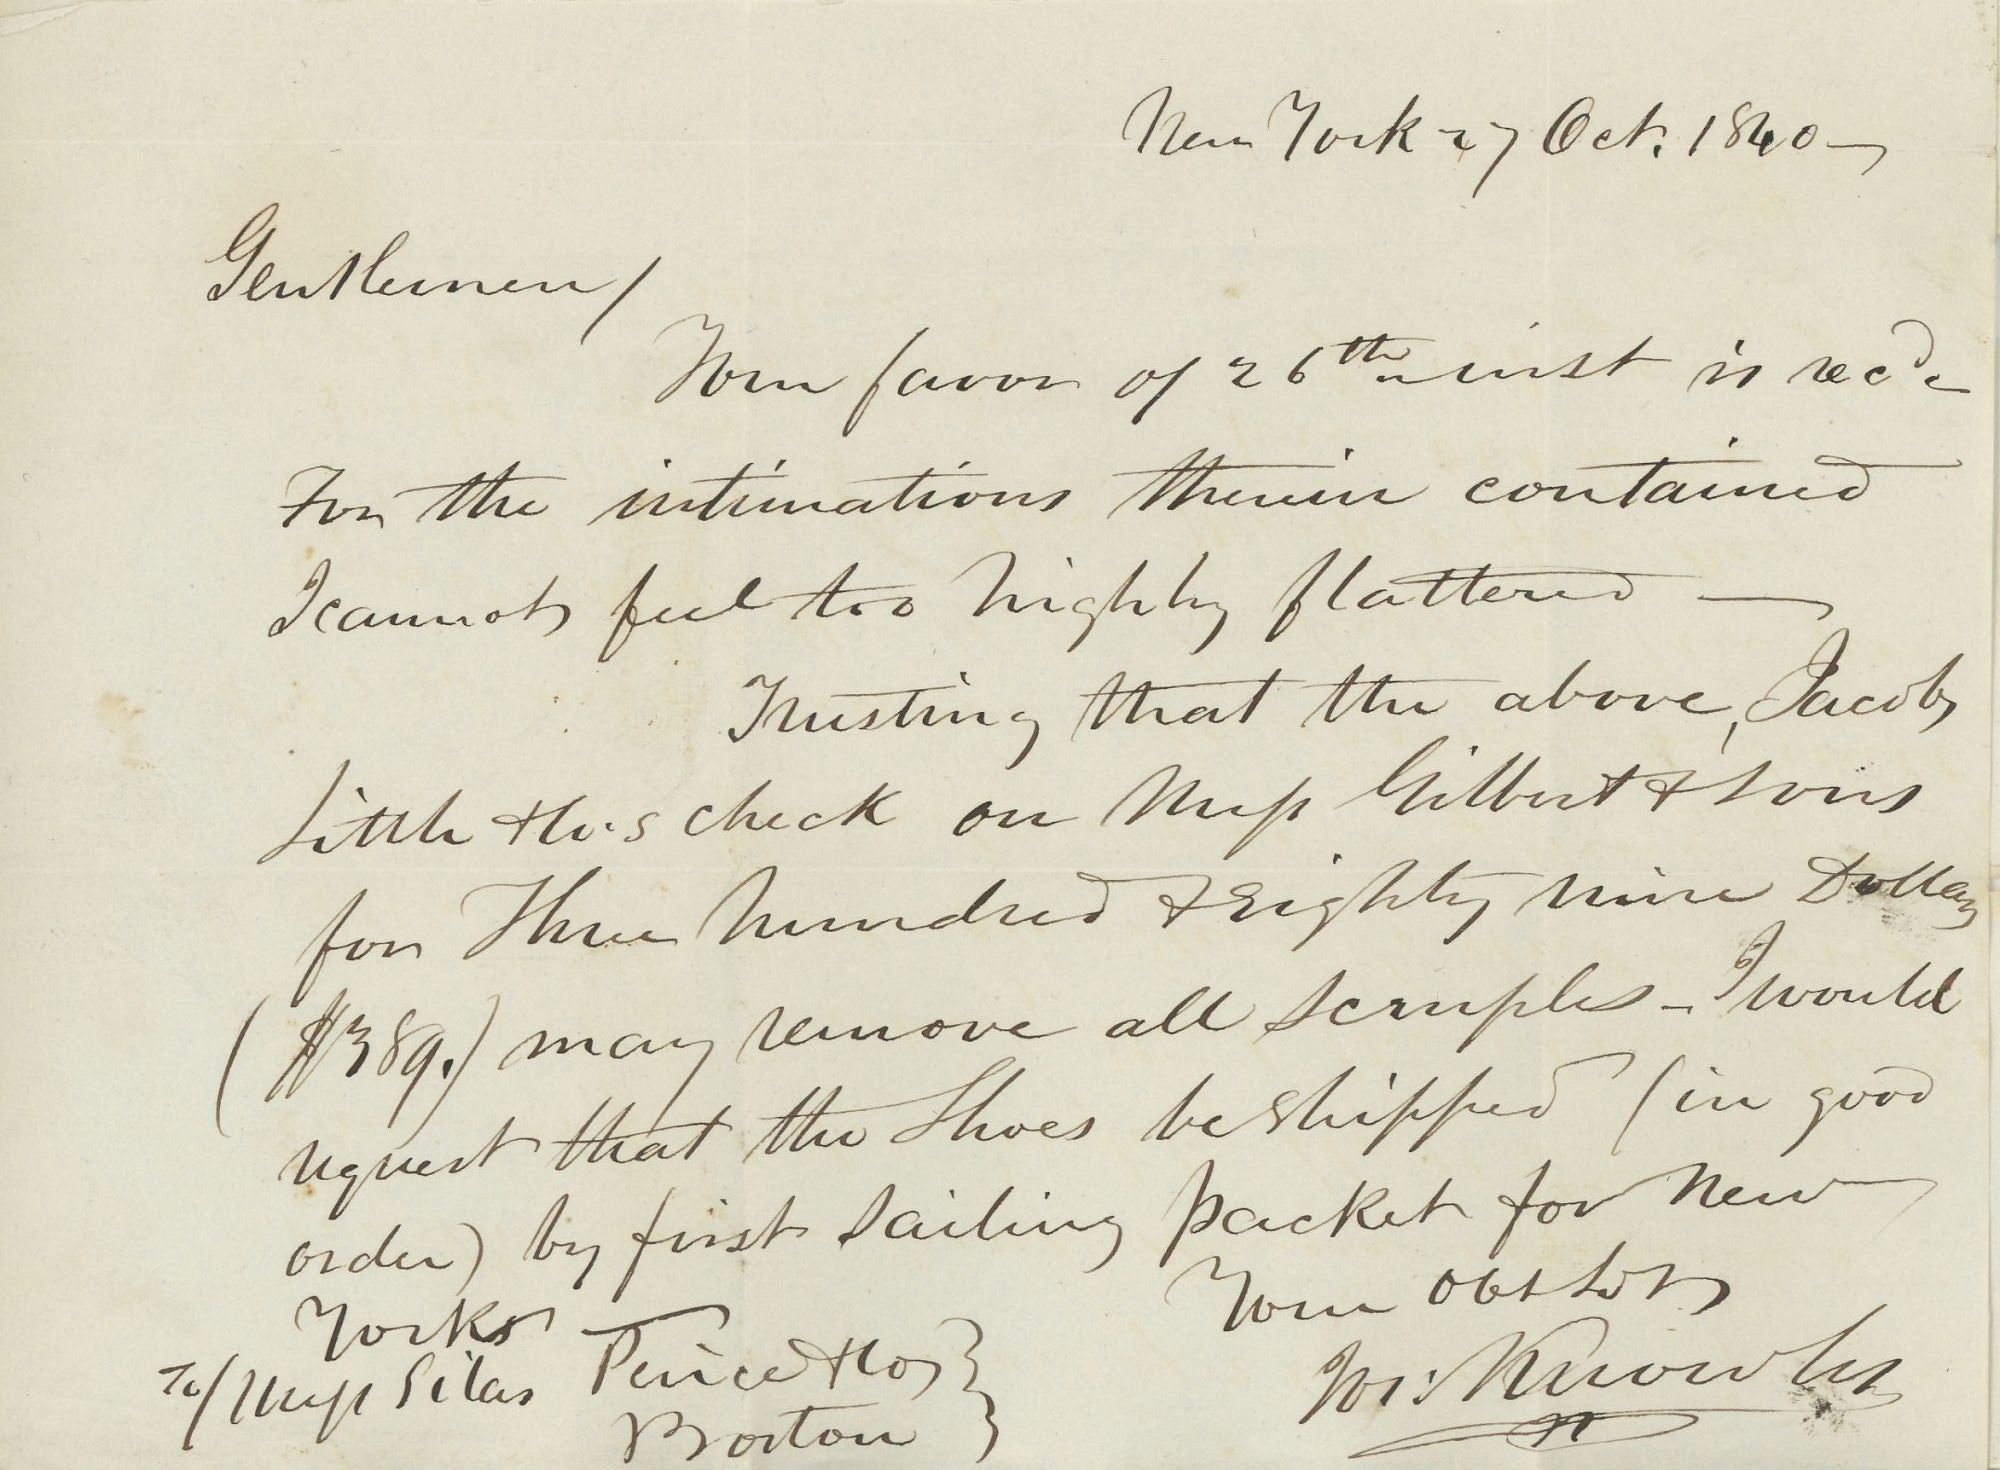 New York 27 Oct. 1840
Gentlemen/
Your favor of 26th inst is rec'd
For the intimations therein contained
I cannot feel too highly flattered —
Trusting that the above, Jacob
Little & Co.s check on Mess Gilbert & Sons
for Three hundred & Eighty nine Dollars
($389.) may remove all scruples – I would
request that the Shoes be shipped (in good
order) by first sailing packet for New
York
Your Obt Svt
To/ Mess Silas Peirce & Co
Boston
Knowles